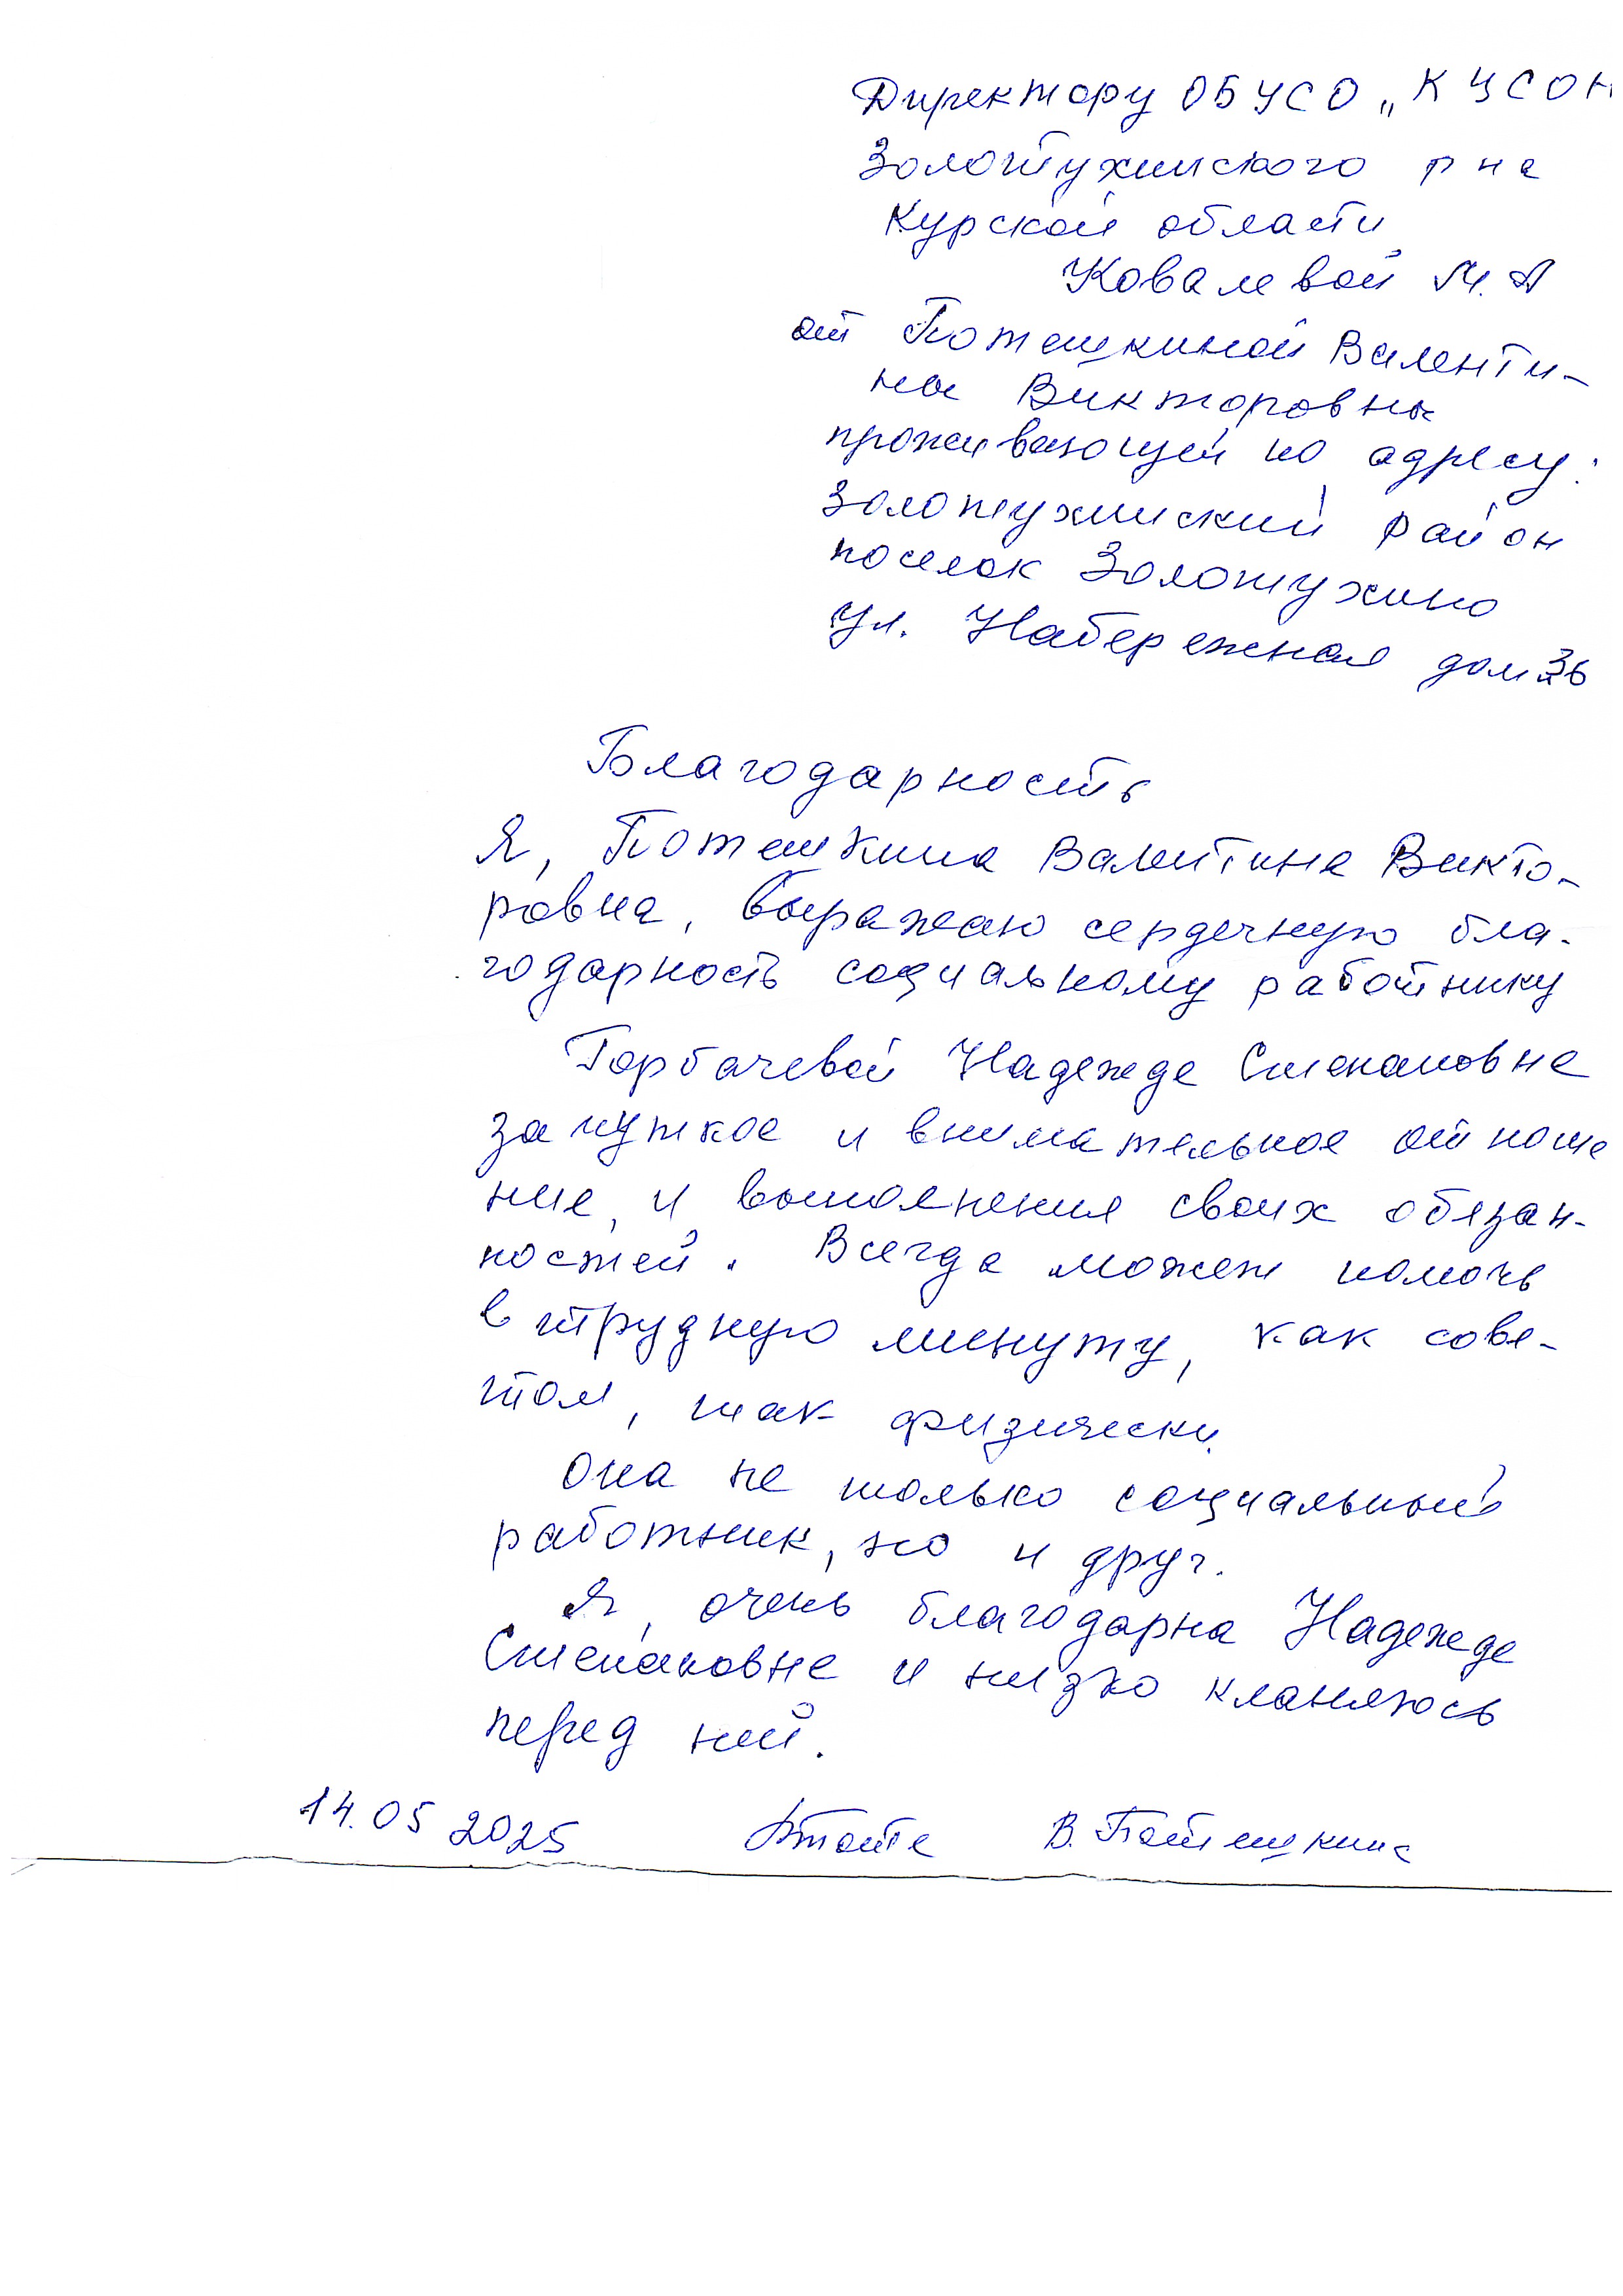 Директору ОБУСО „КЦСОН
Золотухинского р на
Курской области
Ковалевой М.А
от Потешкиной Валенти-
ны Викторовны
проживающей по адресу:
Золотухинский район
поселок Золотухино
ул. Набережная дом
Благодарность
Я, Потешкина Валентина Викто-
ровна, выражаю сердечную бла-
годарность социальному работнику
Горбачевой Надежде Степановне
за чуткое и внимательное отноше
ние, и выполнения своих обязан-
ностей. Всегда может помочь
в трудную минуту, как сове-
том, так физически.
Она не только социальный
работник, но и друг.
Я, очень благодарна Надежде
Степановне и низко кланяюсь
перед ней.
14.05 2025 В. Потешкина